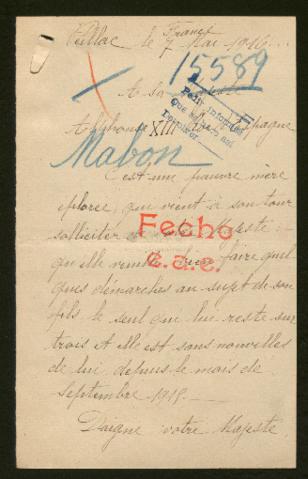 France
Puillac le 7 Mai 1916
15589
A sa Majesté
Pedir informes
Que se
Alphonse XIII Roi d'Espagne
Mabon
C'est une pauvre mère
éplorée, qui vient à son tour
solliciter de votre Majesté
Fecho
qu'elle veuille bien faire quel
c.a.e.
ques démarches au sujet de son
fils le seul que lui reste sur
trois et elle est sans nouvelles
de lui depuis le mois de
septembre 1915.
Daigne votre Majesté